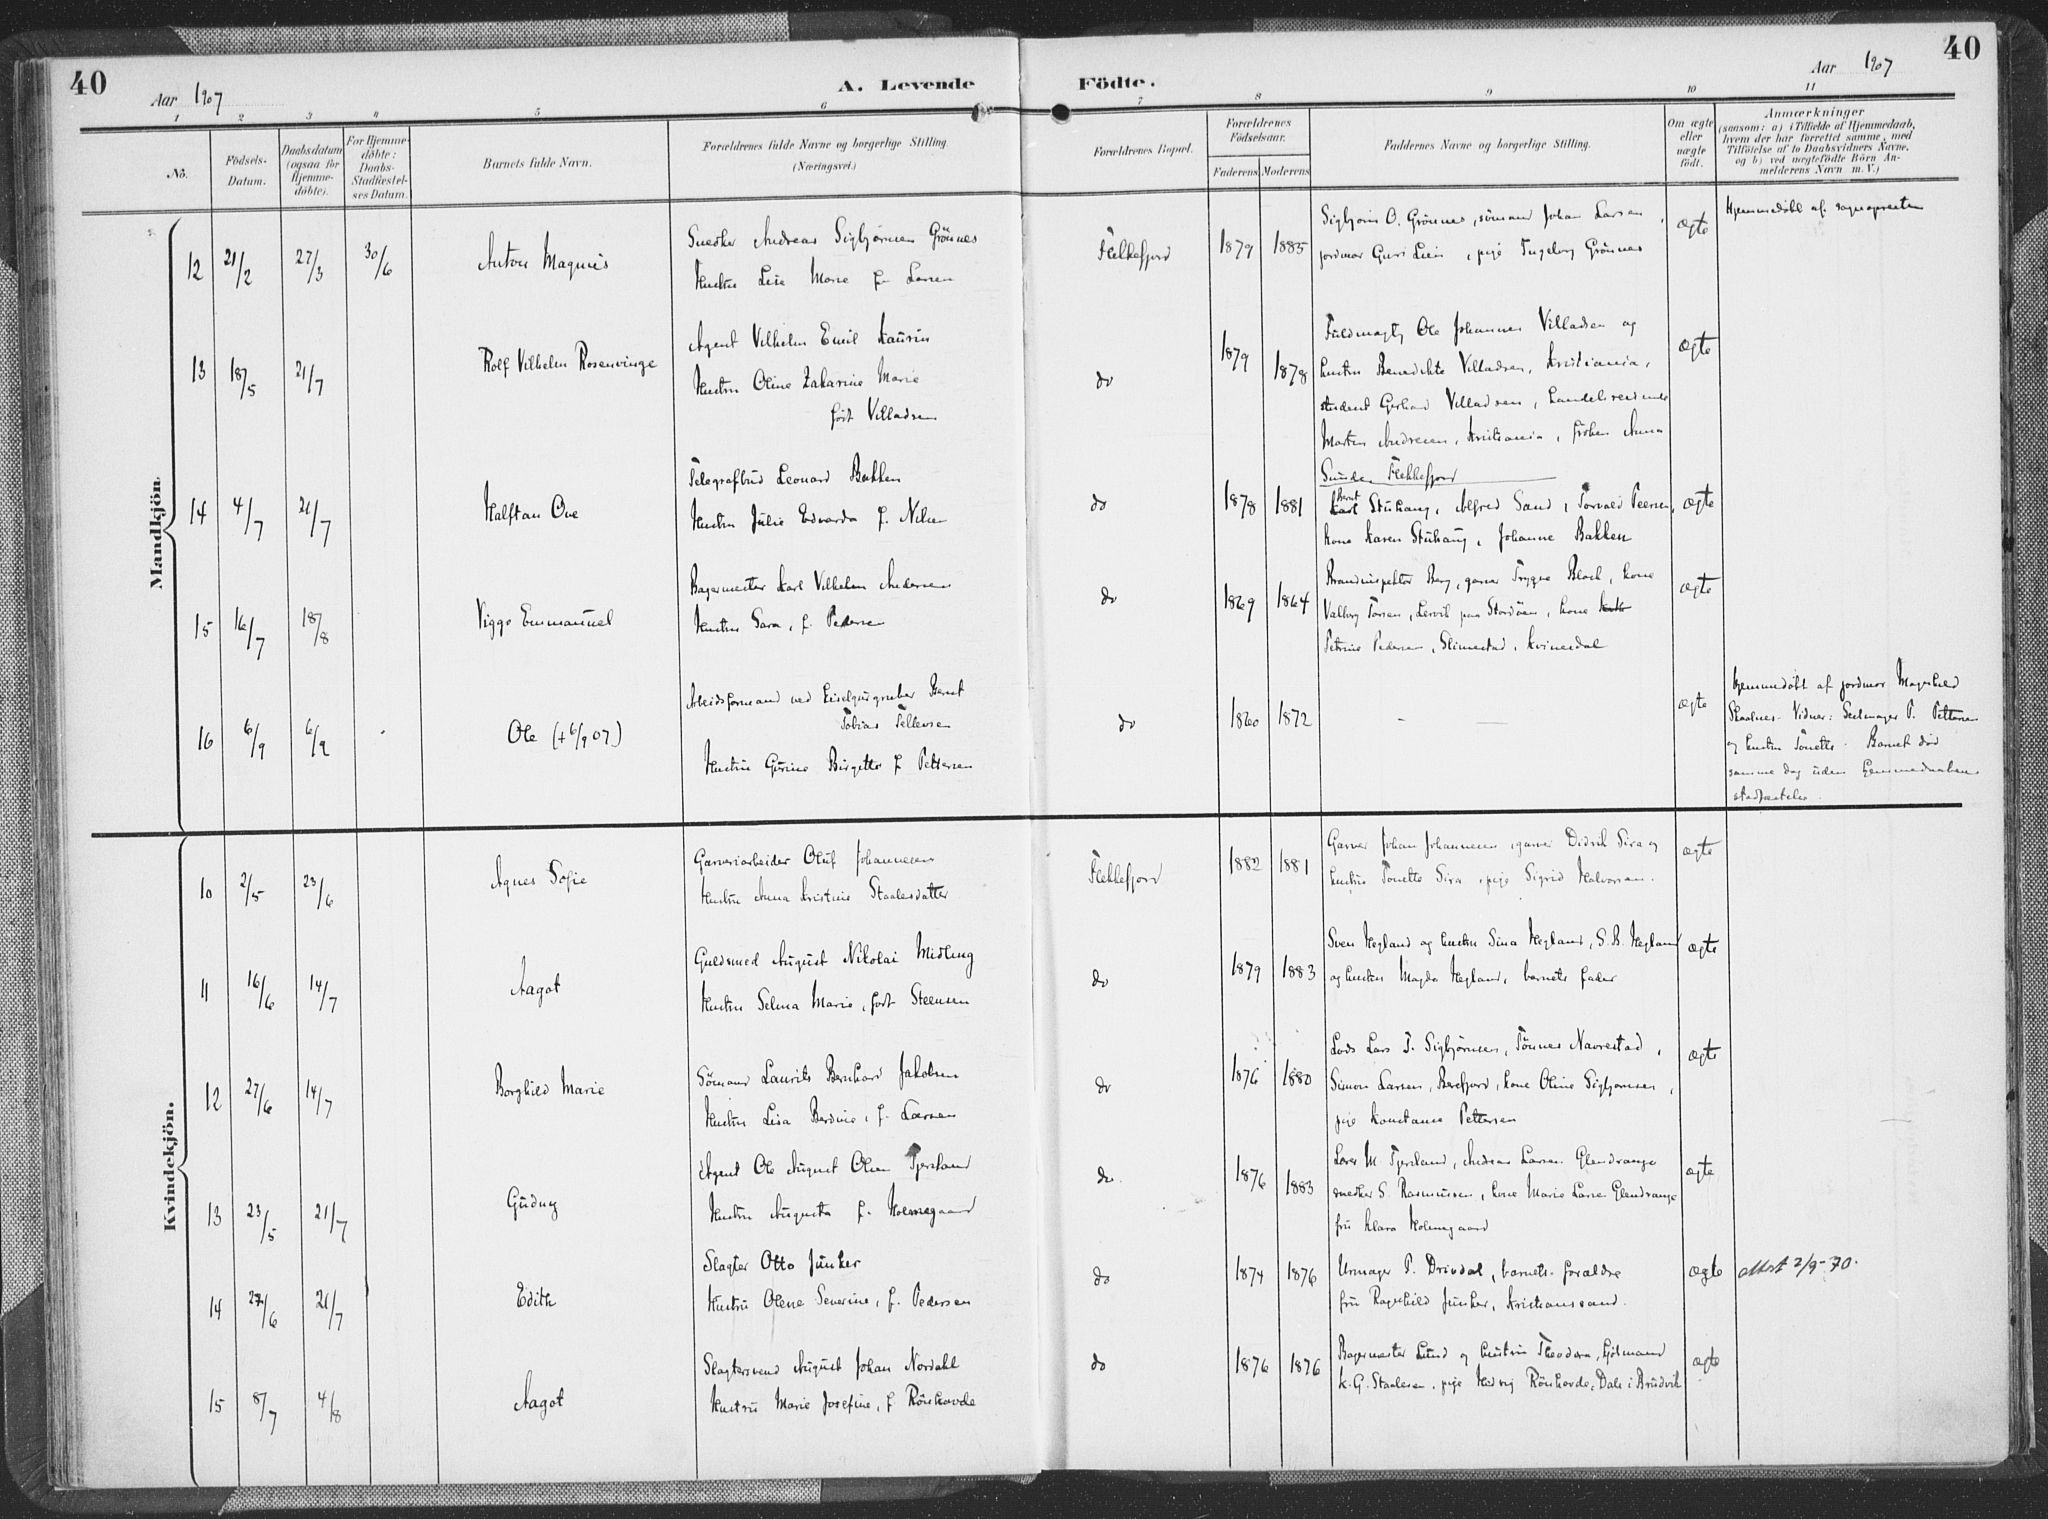 40
Aar 1907
A. Levende
Födte.
Aar 1907
40
1 2 3 4 5 6 7 8 9 10 11
No.
Födsels-Datum.
Daabsdatum (ogsaa for Hjemmedöbte).
For Hjemmedöbte: Daabs-Stadfæstelses Datum.
Barnets fulde Navn.
Forældrenes fulde Navne og borgerlige Stilling.
(Næringsvei.)
Forældrenes Bopæl.
Forældrenes Födselsaar.
Faderens Moderens
Faddernes Navne og borgerlige Stilling.
Om ægte eller uægte födt.
Anmærkninger
(saasom: a) i Tilfælde af Hjemmedaab,
hvem der har forrettet samme, med
Tilföielse af to Daabsvidners Navne,
og b) ved uægtefödte Börn Anmelderens Navn m. V.)
Mandkjön.
12 21/2 27/3 30/6 Anton Magnus
Snedker Andreas Sigbjørnsen Grönnes
Hustru Lise Marie f. Larsen
Flekkefjord 1879 1885
Sigbjørn O. Grönnes, sömand Johan Larsen,
jordmor Guri Lien, pige Ingeborg Grönnes
ægte
Hjemmedöbt af sognepresten
13 18/5 21/7 Rolf Vilhelm Rosenvinge
Agent Vilhelm Emil Kaurin
Hustru Oline Zakarine Marie
født Villadsen
do 1879 1878
Fuldmægtig Ole Johannes Villadsen og
hustru Benedikte Villadsen, Kristiania,
student Gerhard Villadsen, handelsreisende
Morten Andresen, Kristiania, frøken Anna
Sunde, Flekkefjord
ægte
14 4/7 21/7 Halfdan Ove
Telegrafbud Leonard Bakken
Hustru Julie Edvarda f. Nilsen
do 1878 1881
Bernt Stuhaug, Alfred Sand, Torvald Peersen,
kone Karen Stuhaug, Johanne Bakken
ægte
15 16/7 18/8 Viggo Emmanuel
Bagermester Karl Vilhelm Andersen
Hustru Sara, f. Pedersen
do 1869 1864
Brandinspektör Berg, garver Trygve Block, kone
Valborg Torsen, Lervik paa Stordöen, kone
Petrine Pedersen, Slimestad, Kvinesdal
ægte
16 6/9 6/9 Ole (+ 6/9 07)
Arbeidsformand ved kiselgurgruber Bernt
Tobias Tellevsen
Hustru Gurine Birgitte f. Pettersen
do 1860 1872 - —
ægte
Hjemmedöbt af jordmor Magnhild
Skaalnes. Vidner: Seilmager P. Pettersen
og hustru Tonette. Barnet död
samme dag uden hjemmedaabens
stadfæstelse.
Kvindekjön.
10 2/5 23/6 Agnes Sofie
Garveriarbeider Oluf Johannesen
Hustru Anna Kristine Staalesdatter
Flekkefjord 1882 1881
Garver Johan Johannesen, garver Didrik Sira og
hustru Tonette Sira, pige Sigrid Halvorsen.
ægte
11 16/6 14/7 Aagot
Guldsmed August Nikolai Midling
Hustru Selma Marie, født Steensen
do 1879 1883
Sven Hegland og hustru Sina Hegland, S. B. Hegland
og hustru Magda Hegland, barnets fader
ægte
12 27/6 14/7 Borghild Marie
Sömand Laurits Bernhard Jakobsen
Hustru Lisa Berdine, f. Larsen
do 1876 1880
Lods Lars T. Sigbjörnsen, Tönnes Navrestad,
Simon Larsen, Berefjord, kone Oline Sigbjörnsen,
pige Konstance Pettersen
ægte
13 23/5 21/7 Gudny
Agent Ole August Olsen Tjersland
Hustru Augusta f. Holmegaard
do 1876 1883
Lover M. Tjersland, Andreas Larsen Glendrange
snedker S. Rasmussen, kone Marie Larsen Glendrange
fru Klara Holmegaard
ægte
14 27/6 21/7 Edith
Slagter Otto Junker
Hustru Olene Severine, f. Pedersen
do 1874 1876
Urmager P. Drivdal, barnets forældre
fru Ragnhild Junker, Kristianssand.
ægte
Attest 2/9-70.
15 8/7 4/8 Aagot
Slagtersvend August Johan Nordahl
Hustru Marie Josefine, f. Rönhovde
do 1876 1876
Bagermester Lund og hustru Theodora, kjöbmand
K. G. Staalesen, pige Hedvig Rönhovde, Dale i Bruvik
ægte